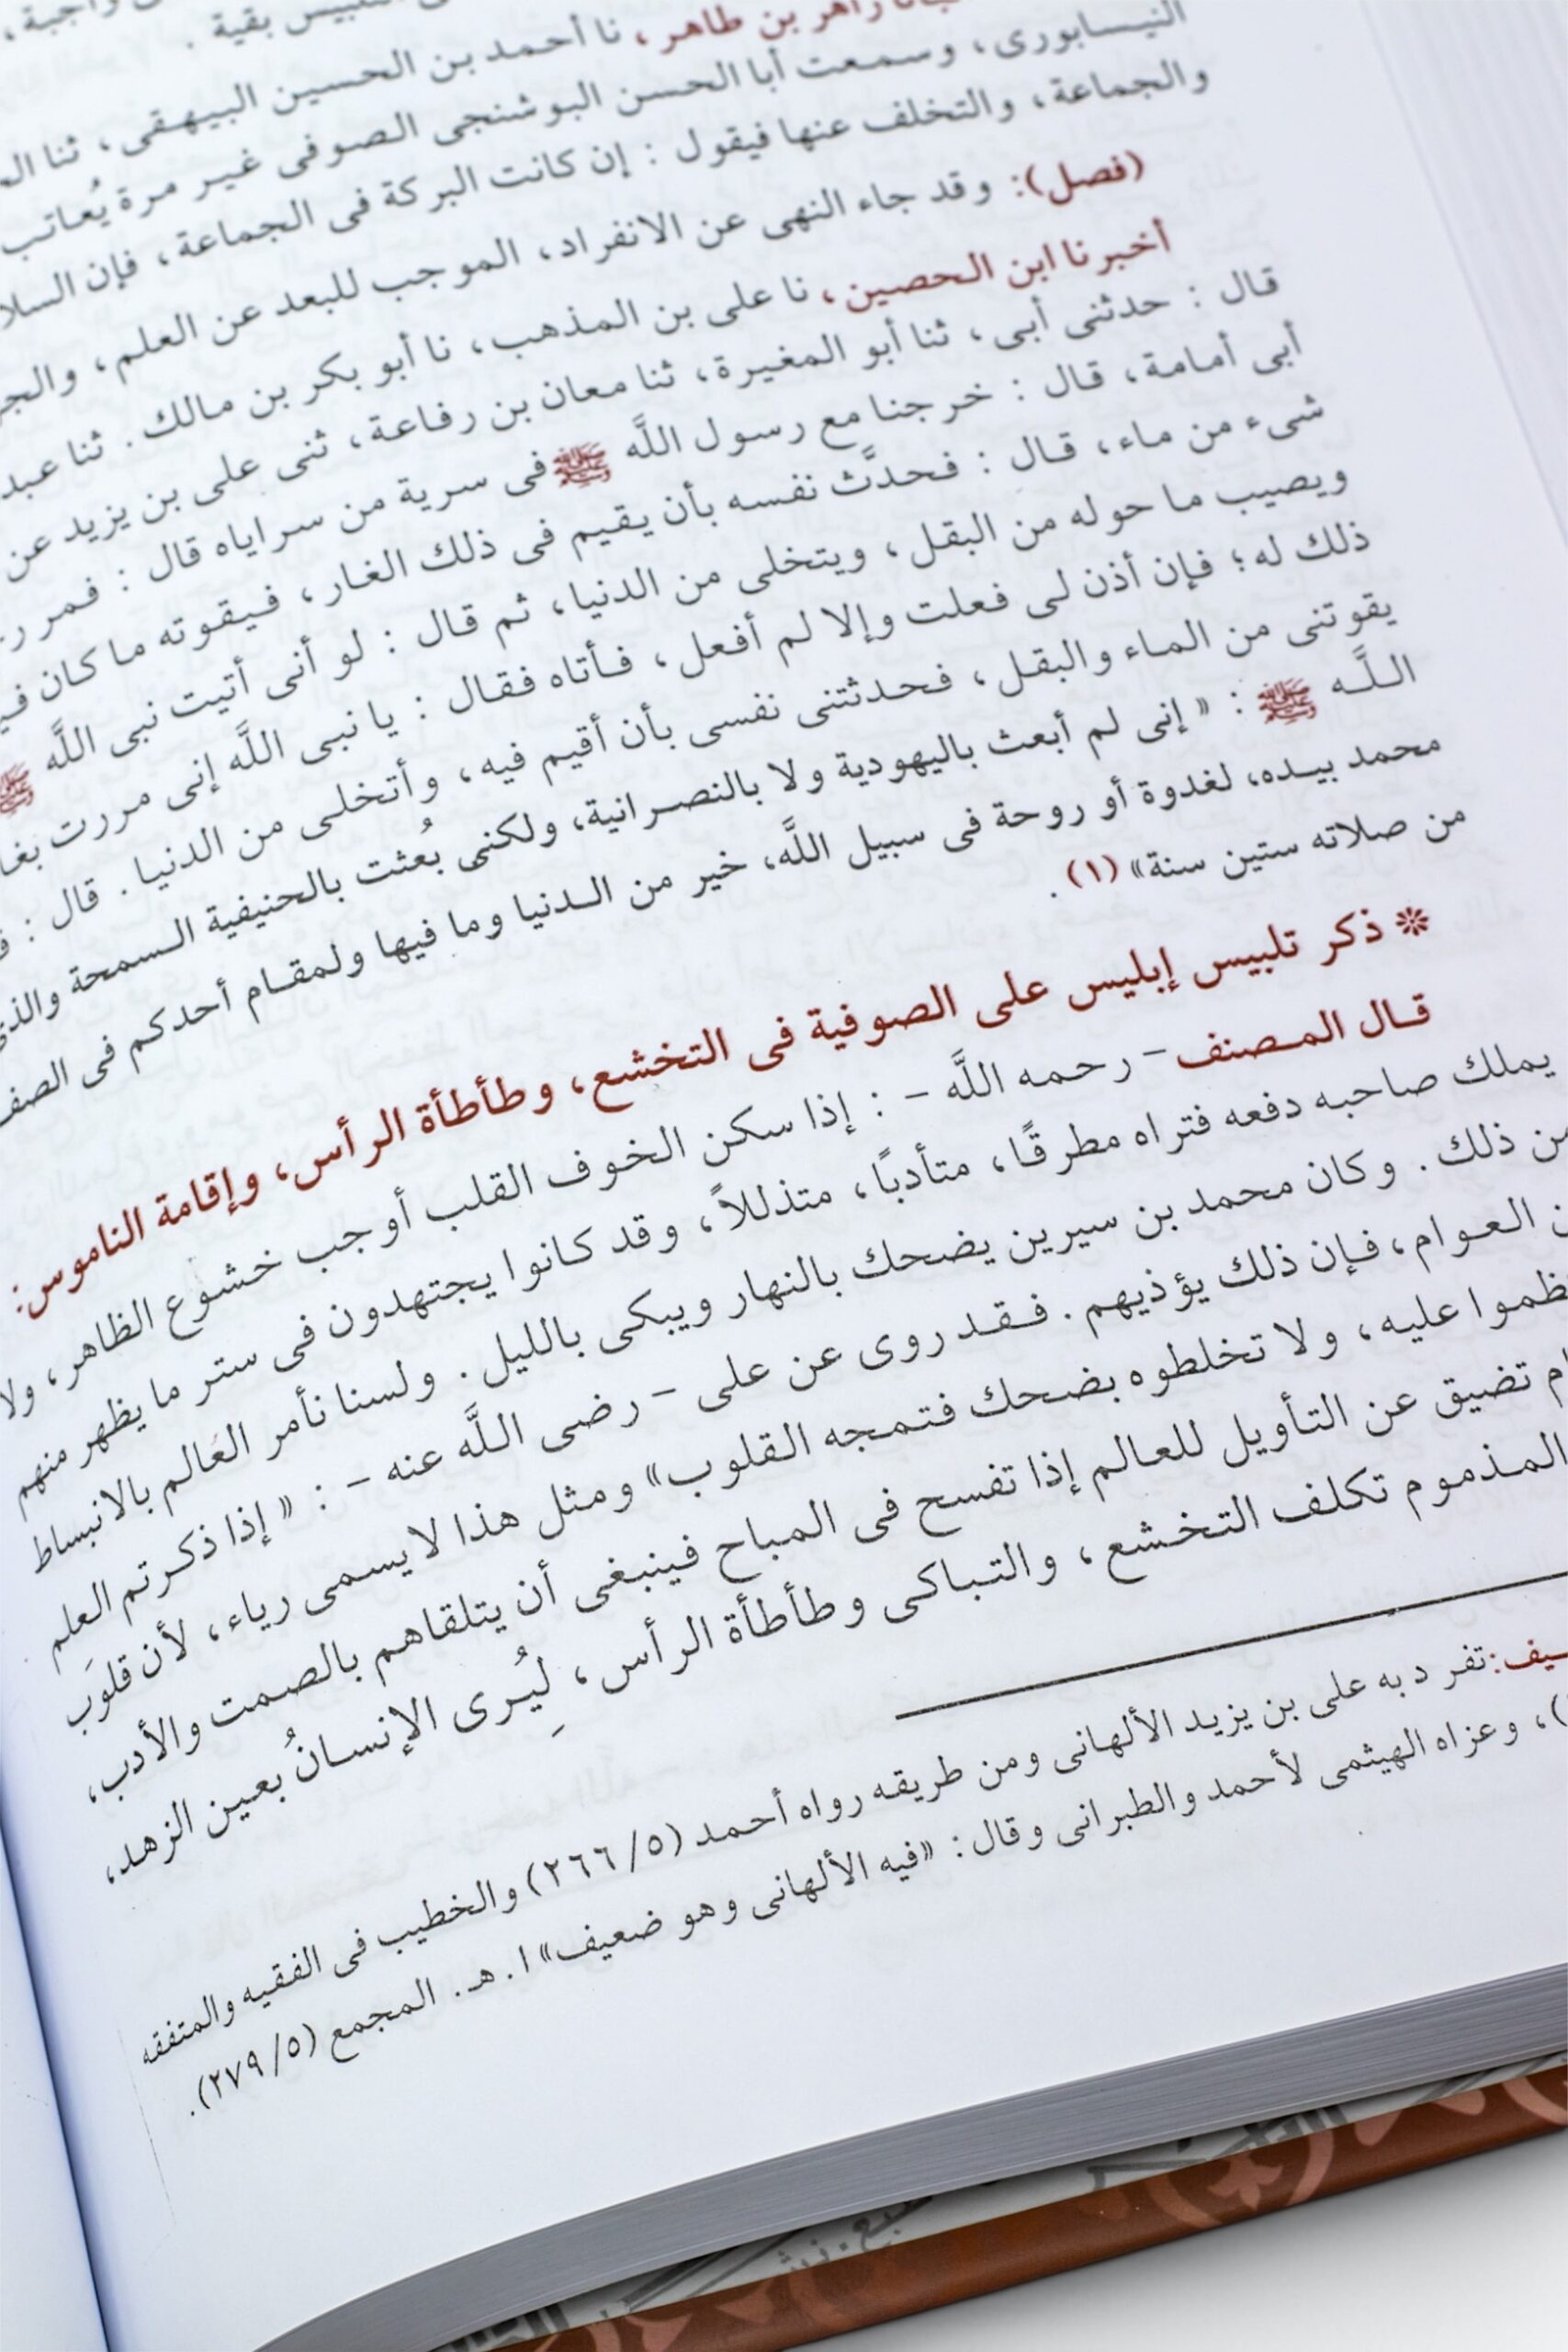 تلبيس بقية .
زاهر بن طاهر، نا أحمد بن الحسين البيهقى، ثنا
النيسابورى، وسمعت أبا الحسن البوشنجى الصوفى غير مرة يُعاتب
والجماعة، والتخلف عنها فيقول : إن كانت البركة فى الجماعة، فإن
(فصل): وقد جاء النهى عن الانفراد، الموجب للبعد عن العلم،
أخبرنا ابن الحصين، نا على بن المذهب، نا أبو بكر بن مالك. ثنا
قال : حدثنى أبى، ثنا أبو المغيرة، ثنا معان بن رفاعة، ثنى على بن يزيد عن
أبى أمامة، قال : خرجنا مع رسول اللَّه ﷺ فى سرية من سراياه قال : فمر
شىء من ماء، قال : فحدَّث نفسه بأن يقيم فى ذلك الغار، فيقوته ما كان
ويصيب ما حوله من البقل، ويتخلى من الدنيا، ثم قال : لو أنى أتيت نبى اللَّه ﷺ
ذلك له؛ فإن أذن لى فعلت وإلا لم أفعل، فأتاه فقال : يا نبى اللَّه إنى مررت
يقوتنى من الماء والبقل، فحدثتنى نفسى بأن أقيم فيه، وأتخلى من الدنيا. قال :
اللَّه ﷺ : « إنى لم أبعث باليهودية ولا بالنصرانية، ولكنى بُعثت بالحنيفية السمحة
محمد بيده، لغدوة أو روحة فى سبيل اللَّه، خير من الدنيا وما فيها ولمقام أحدكم فى الصف
من صلاته ستين سنة» (١) .
❊ ذكر تلبيس إبليس على الصوفية فى التخشع، وطأطأة الرأس، وإقامة الناموس:
قال المصنف - رحمه اللَّه - : إذا سكن الخوف القلب أوجب خشوع الظاهر، ولا
يملك صاحبه دفعه فتراه مطرقًا، متأدبًا، متذللاً، وقد كانوا يجتهدون فى ستر ما يظهر منهم
من ذلك. وكان محمد بن سيرين يضحك بالنهار ويبكى بالليل. ولسنا نأمر العالم بالانبساط
العوام، فإن ذلك يؤذيهم. فقد روى عن على - رضى اللَّه عنه - : « إذا ذكرتم العلم
عليه، ولا تخلطوه بضحك فتمجه القلوب» ومثل هذا لا يسمى رياء، لأن قلوَب
تضيق عن التأويل للعالم إذا تفسح فى المباح فينبغى أن يتلقاهم بالصمت والأدب،
المذموم تكلف التخشع، والتباكى وطأطأة الرأس، لِيُرى الإنسانُ بعين الزهد،
تفرد به على بن يزيد الألهانى ومن طريقه رواه أحمد (٥/ ٢٦٦) والخطيب فى الفقيه والمتفقه
)، وعزاه الهيثمى لأحمد والطبرانى وقال : «فيه الألهانى وهو ضعيف» ا. هـ. المجمع (٥/ ٢٧٩).